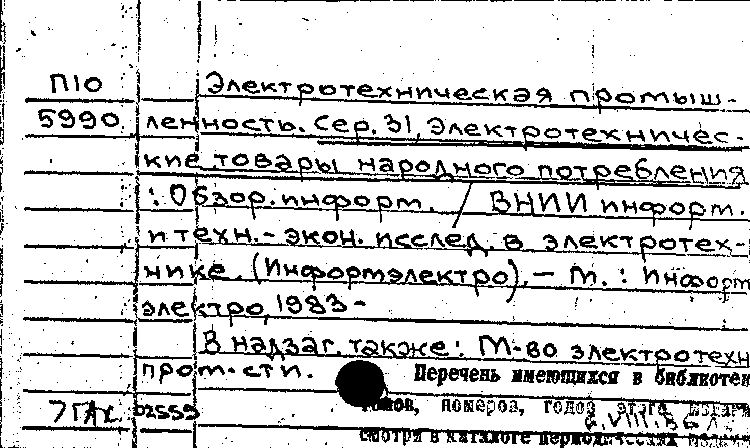 П10 Электротехническая промыш-
5990 ленность. Сер. 31, Электротехничес-
кие товары народного потребления
: Обзор. информ. / ВНИИ информ.
и техн.-экон. исслед. в электротех-
нике. (Информэлектро). – М. : Информ
электро, 1983 -
В надзаг. также: М-во электротехн
пром-сти.
Перечень имеющихся в библиотек
томов, номеров, годов этого
7ГАК 02559
смотри в каталоге